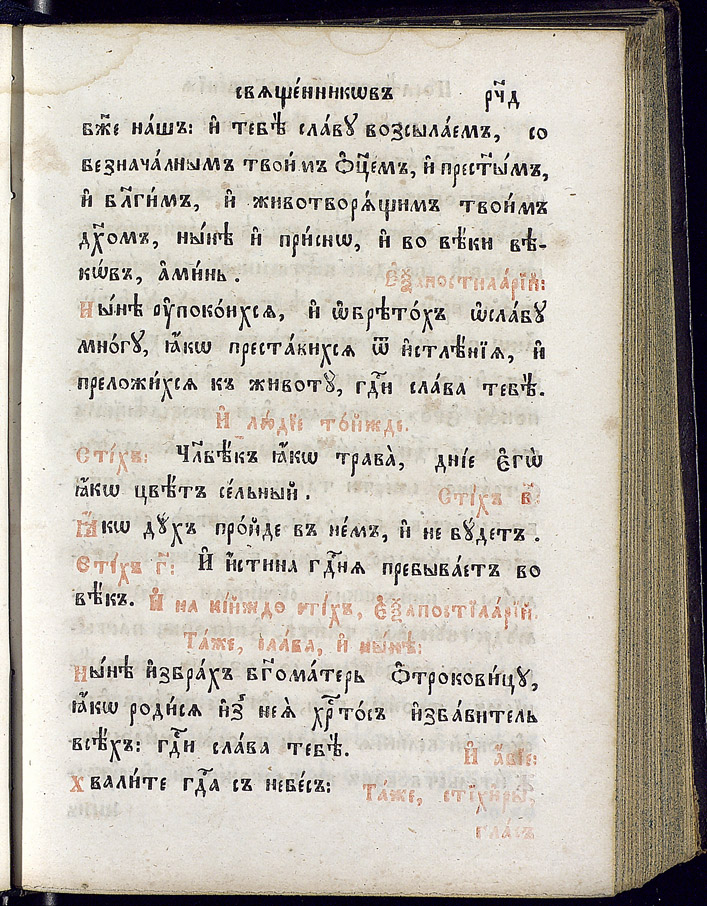 свѧще́нникѡвъ рч҃д
бж҃е на́шъ: и҆ тебѣ̀ сла́вꙋ возсыла́емъ, со
безнача́лнымъ твои́мъ ѻ҆ц҃е́мъ, и҆ прест҃ы́мъ,
и҆ бл҃ги́мъ, и҆ животворѧ́щимъ твои́мъ
дх҃омъ, ны́нѣ и҆ при́снѡ, и҆ во вѣ́ки вѣ-
кѡ́въ, а҆ми́нь. Є҆ѯапостїла́рїй:
Ны́нѣ ᲂу҆поко́ихсѧ, и҆ ѡ҆брѣто́хъ ѡ҆сла́бꙋ
мно́гꙋ, ꙗ҆́кѡ преста́вихсѧ ѿ и҆стлѣ́нїѧ, и҆
преложи́хсѧ къ животꙋ̀, гдⷭ҇и сла́ва тебѣ̀.
И҆ лю́дїе то́йжде.
Сті́хъ: Чл҃вѣ́къ ꙗ҆́кѡ трава̀, дні́е є҆гѡ̀
ꙗ҆́кѡ цвѣ́тъ се́льный. Сті́хъ в҃:
Ꙗ҆́кѡ дꙋ́хъ про́йде въ не́мъ, и҆ не бꙋ́детъ.
Сті́хъ г҃: И҆ и҆́стина гдⷭ҇нѧ пребыва́етъ во
вѣ́къ. И҆ на кі́йждо сті́хъ, є҆ѯапостїла́рїй.
Та́же, сла́ва, и҆ ны́нѣ:
Ны́нѣ и҆збра́хъ бг҃ома́терь ѻ҆трокови́цꙋ,
ꙗ҆́кѡ роди́сѧ и҆з̾ неѧ̀ хрⷭ҇то́съ и҆зба́витель
всѣ́хъ: гдⷭ҇и сла́ва тебѣ̀. И҆ а҆́бїе:
Хвали́те гдⷭ҇а съ небе́съ: Та́же, стїхи́ры,
гла́съ